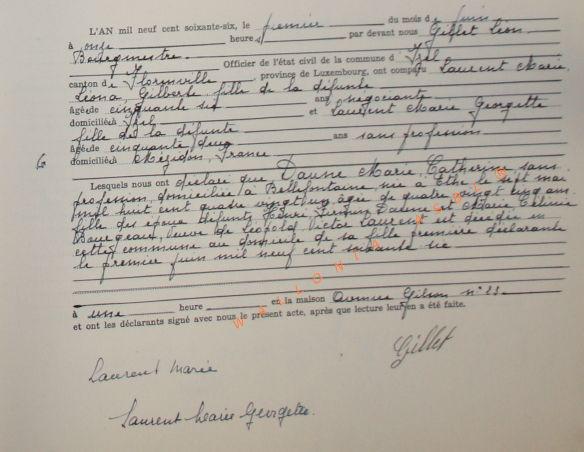 L'AN mil neuf cent soixante-six, le premier du mois de juin
à onze heures par devant nous Gillet Léon
Bourgmestre Officier de l'état civil de la commune d'Izel
canton de Florenville, province de Luxembourg, ont comparu Laurent Marie,
Léona, Gilberte fille de la défunte
âgée de cinquante six ans, négociante
domiciliée à Izel et Laurent Marie Georgette
fille de la défunte
âgée de cinquante deux ans sans profession
domiciliée à Mézidon, France
6
Lesquels nous ont déclaré que Dausne Marie, Catherine, sans
profession, domiciliée à Bellefontaine, née à Ethe le sept mai
mil huit cent quatre vingt un, âgée de quatre vingt cinq ans
fille des époux défunts Henri Dausne et Marie
Bourgeaux, veuve de Léopold Victor Laurent est décédée en
cette commune au domicile de sa fille première déclarante
le premier juin mil neuf cent soixante six
à une heure en la maison Avenue Gilson n° 23
et ont les déclarants signé avec nous le présent acte, après que lecture leur en a été faite.
WALLONIA
Gillet
Laurent Marie
Laurent Marie Georgette.